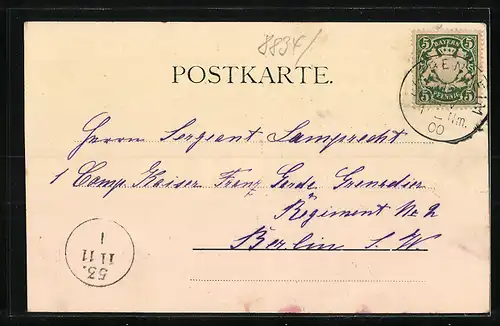 8834/
5 BAYERN 5
5 PFENNIG 5
Nm.
00
POSTKARTE.
Herrn Sergeant Lamprecht
1 Comp. Kaiser Franz Garde Grenadier
Regiment Nr. 2
Berlin S. W.
53.
11 11
1